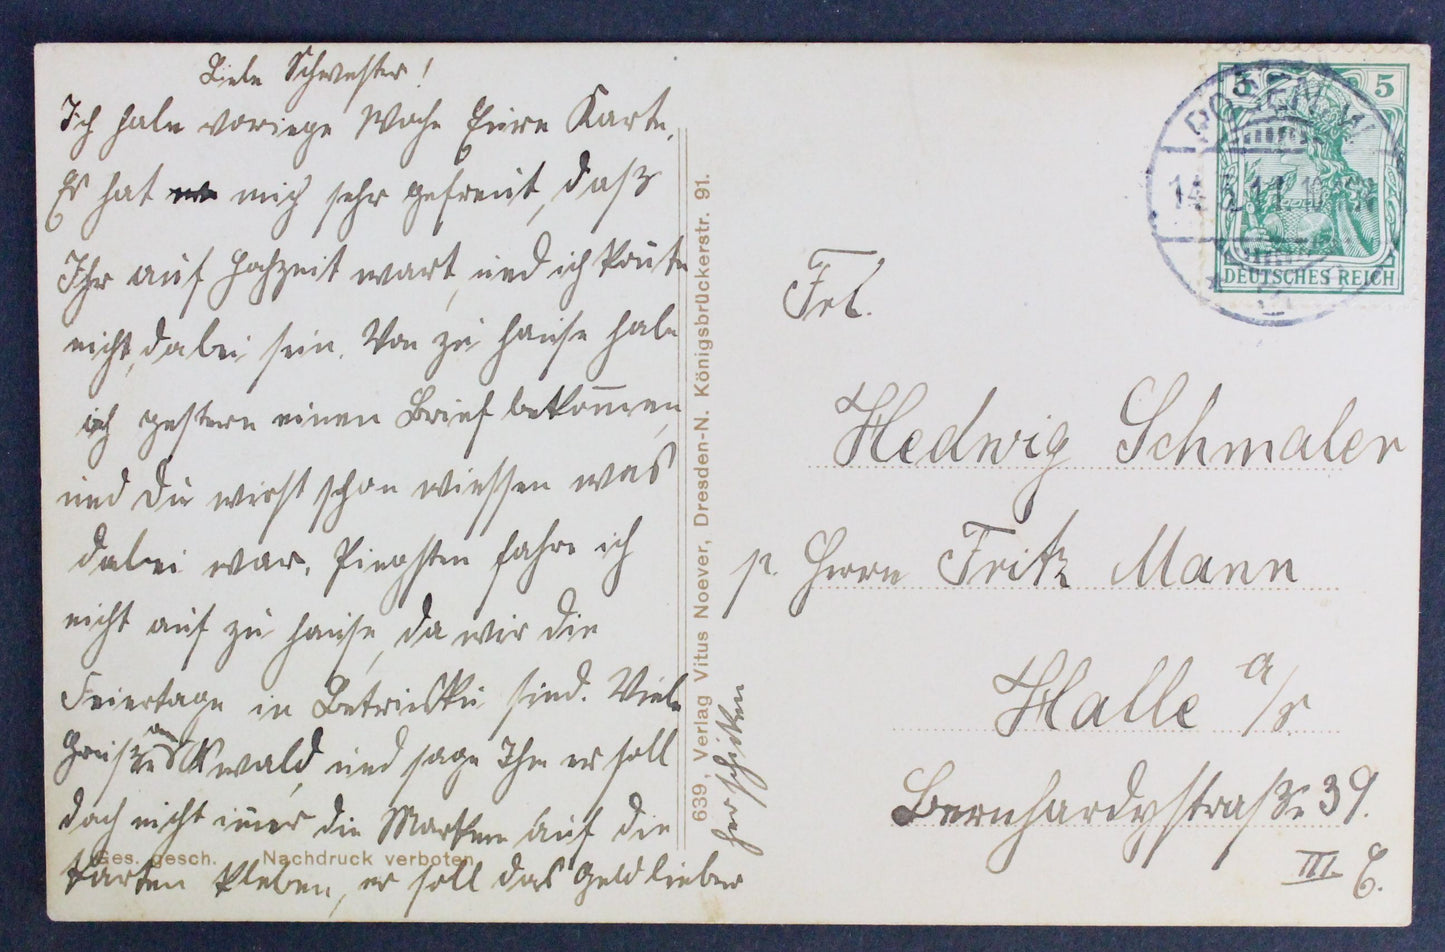 Liebe Schwester!
Ich habe vorige Woche Eure Karte.
Es hat mich sehr gefreut, daß
Ihr auf Hochzeit wart, und ich konnte
nicht dabei sein. Von zu Hause habe
ich gestern einen Brief bekom̅en,
und Du wirst schon wiessen was
dabei war. Pingsten fahre ich
nicht auf zu Hause, da wir die
Feiertage in sind. Viele
Grüße an wald, und sage Ihm er soll
doch nicht im̅er die Marken auf die
Karten kleben, er soll das Geld lieber
her schicken
639, Verlag Vitus Noever, Dresden-N. Königsbrückerstr. 91.
Ges. gesch. Nachdruck verboten.
5 5
DEUTSCHES REICH
POSEN W
14.5.11.
Frl.
Hedwig Schmaler
p. Herrn Fritz Mann
Halle a/s
Bernhardystraße 39.
III. E.